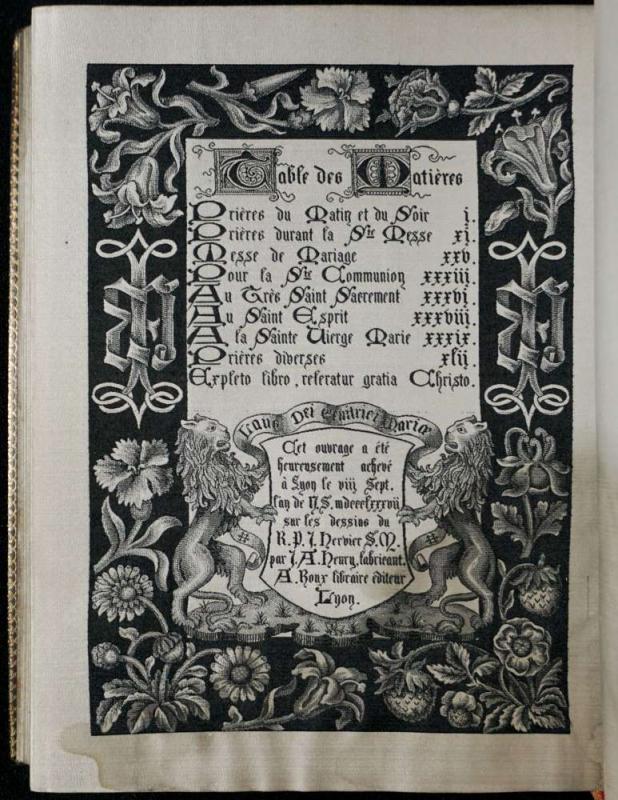 Table des Matières
Prières du Matin et du Soir i.
Prières durant la Ste Messe xi.
Messe de Mariage xxv.
Pour la Ste Communion xxxiii.
Au Très Saint Sacrement xxxvi.
Au Saint Esprit xxxviii.
A la Sainte Vierge Marie xxxix.
Prières diverses xlii.
Expleto libro, referatur gratia Christo.
Laus Dei Genitrici Mariæ
Cet ouvrage a été
heureusement achevé
à Lyon le viij Sept.
l'an de N.S. mdccclxxxvii
sur les dessins du
R.P. J. Hervier S.M.
par J.A. Henry, fabricant.
A. Roux libraire éditeur
Lyon.